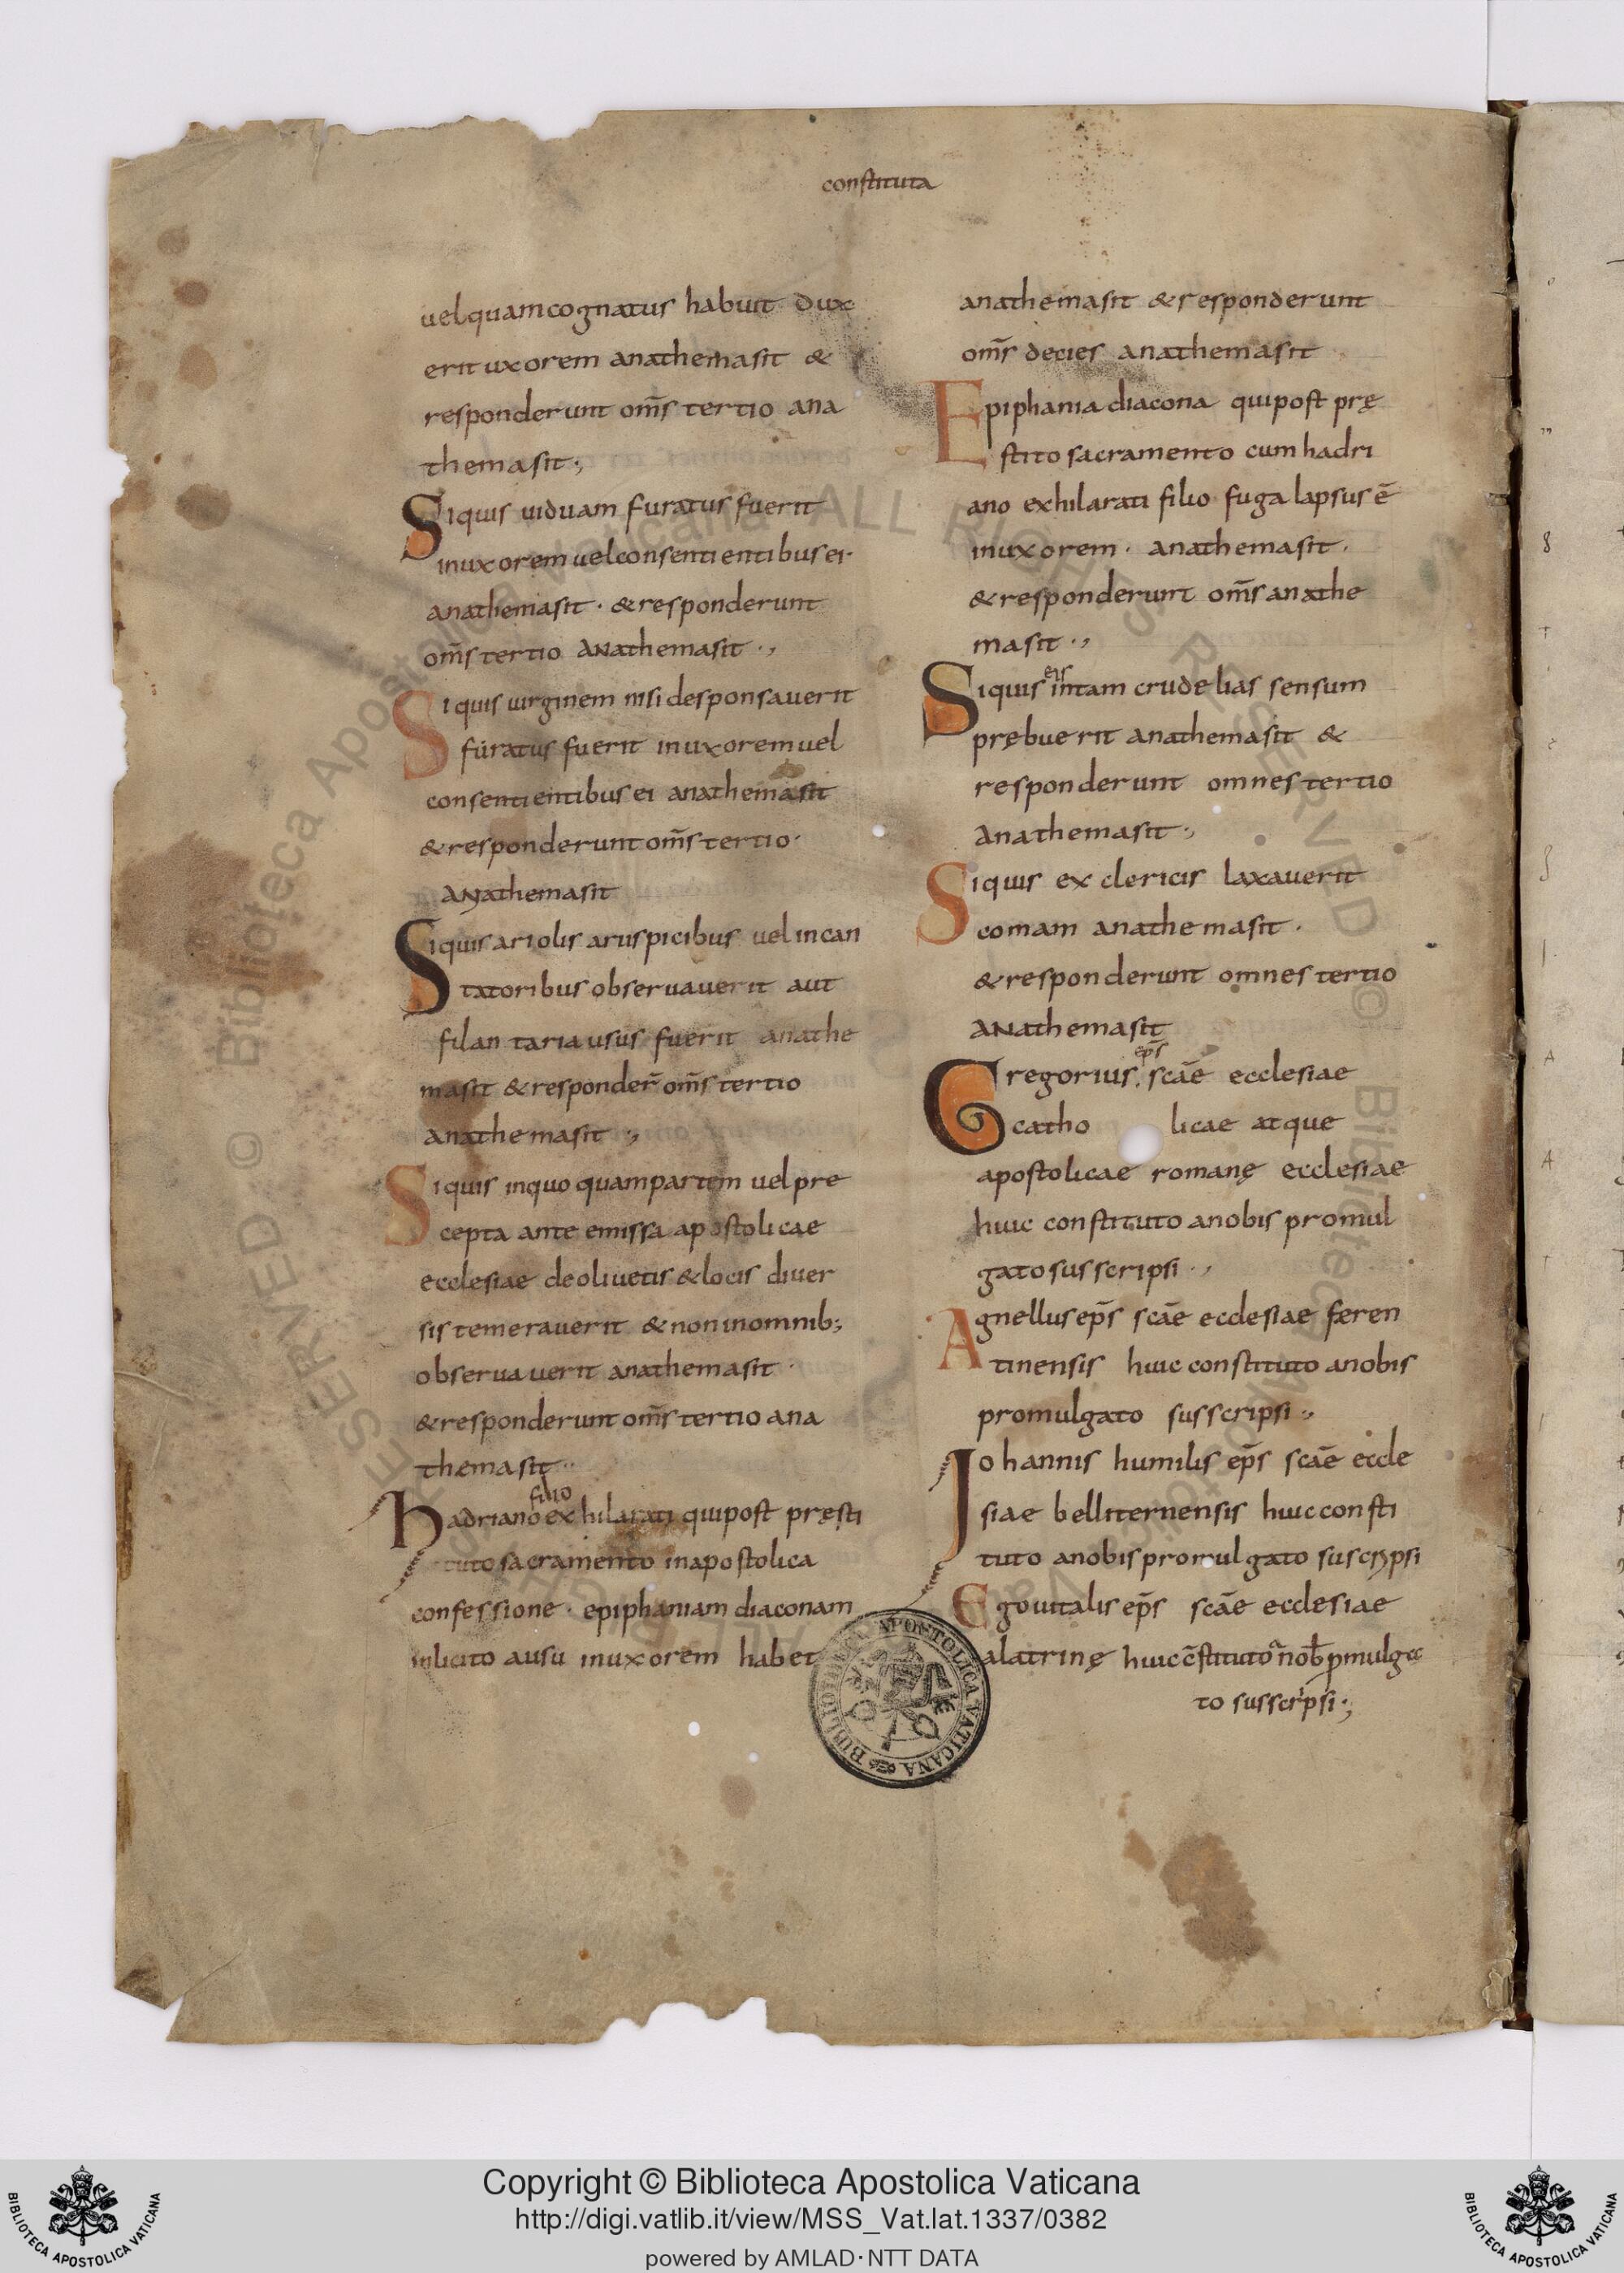 constituta
uel quam cognatus habuit dux
erit uxorem anathema sit &
responderunt om̄s tertio ana
thema sit;
Siquis uiduam furatus fuerit
in uxorem uel consentientibus ei·
anathema sit · & responderunt
om̄s tertio anathema sit ·,
Siquis uirginem nisi desponsauerit
furatus fuerit in uxorem uel
consentientibus ei anathema sit
& responderunt om̄s tertio·
anathema sit
Siquis ariolis aruspicibus uel incan
tatoribus obseruauerit aut
filantaria usus fuerit anathe
ma sit & responder̄ om̄s tertio
anathema sit ·,
Siquis inquoquam partem uel pre
cepta ante emissa apostolicae
ecclesiae de oliuetis & locis diuer
sis temerauerit & non in omnib;
obseruauerit anathema sit ·
& responderunt om̄s tertio ana
thema sit ··
filio
hadriano exhilarati qui post pręsti
tuto sacramento in apostolica
confessione · epiphaniam diaconam
inlicito ausu in uxorem habet
anathema sit & responderunt
om̄s decies anathema sit
Epiphania diacona qui post prę
stito sacramento cum hadri
ano exhilarati filio fuga lapsus ē
in uxorem · anathema sit ·
& responderunt om̄s anathe
ma sit ·,
eis
Siquis in tam crudelias sensum
prębuerit anathema sit &
responderunt omnes tertio
anathema sit ·,
Siquis ex clericis laxauerit
comam anathema sit ·
& responderunt omnes tertio
anathema sit
ep̄s
Gregorius . sc̄ae ecclesiae
catho licae atque
apostolicae romanę ecclesiae
huic constituto a nobis promul
gato susscripsi ·,
Agnellus ep̄s sc̄ae ecclesiae feren
tinensis huic constituto a nobis
promulgato susscripsi ·,
Iohannis humilis ep̄s sc̄ae eccle
siae belliternensis huic consti
tuto a nobis promulgato suscripsi
Ego uitalis ep̄s sc̄ae ecclesiae
alatrinę huic c̄stituto a nob̄ ꝓmulga
to susscripsi ·;
BIBLIOTHECA APOSTOLICA VATICANA
Biblioteca Apostolica Vaticana ALL RIGHTS RESERVED ©
Copyright © Biblioteca Apostolica Vaticana
http://digi.vatlib.it/view/MSS_Vat.lat.1337/0382
powered by AMLAD·NTT DATA
BIBLIOTECA APOSTOLICA VATICANA
BIBLIOTECA APOSTOLICA VATICANA